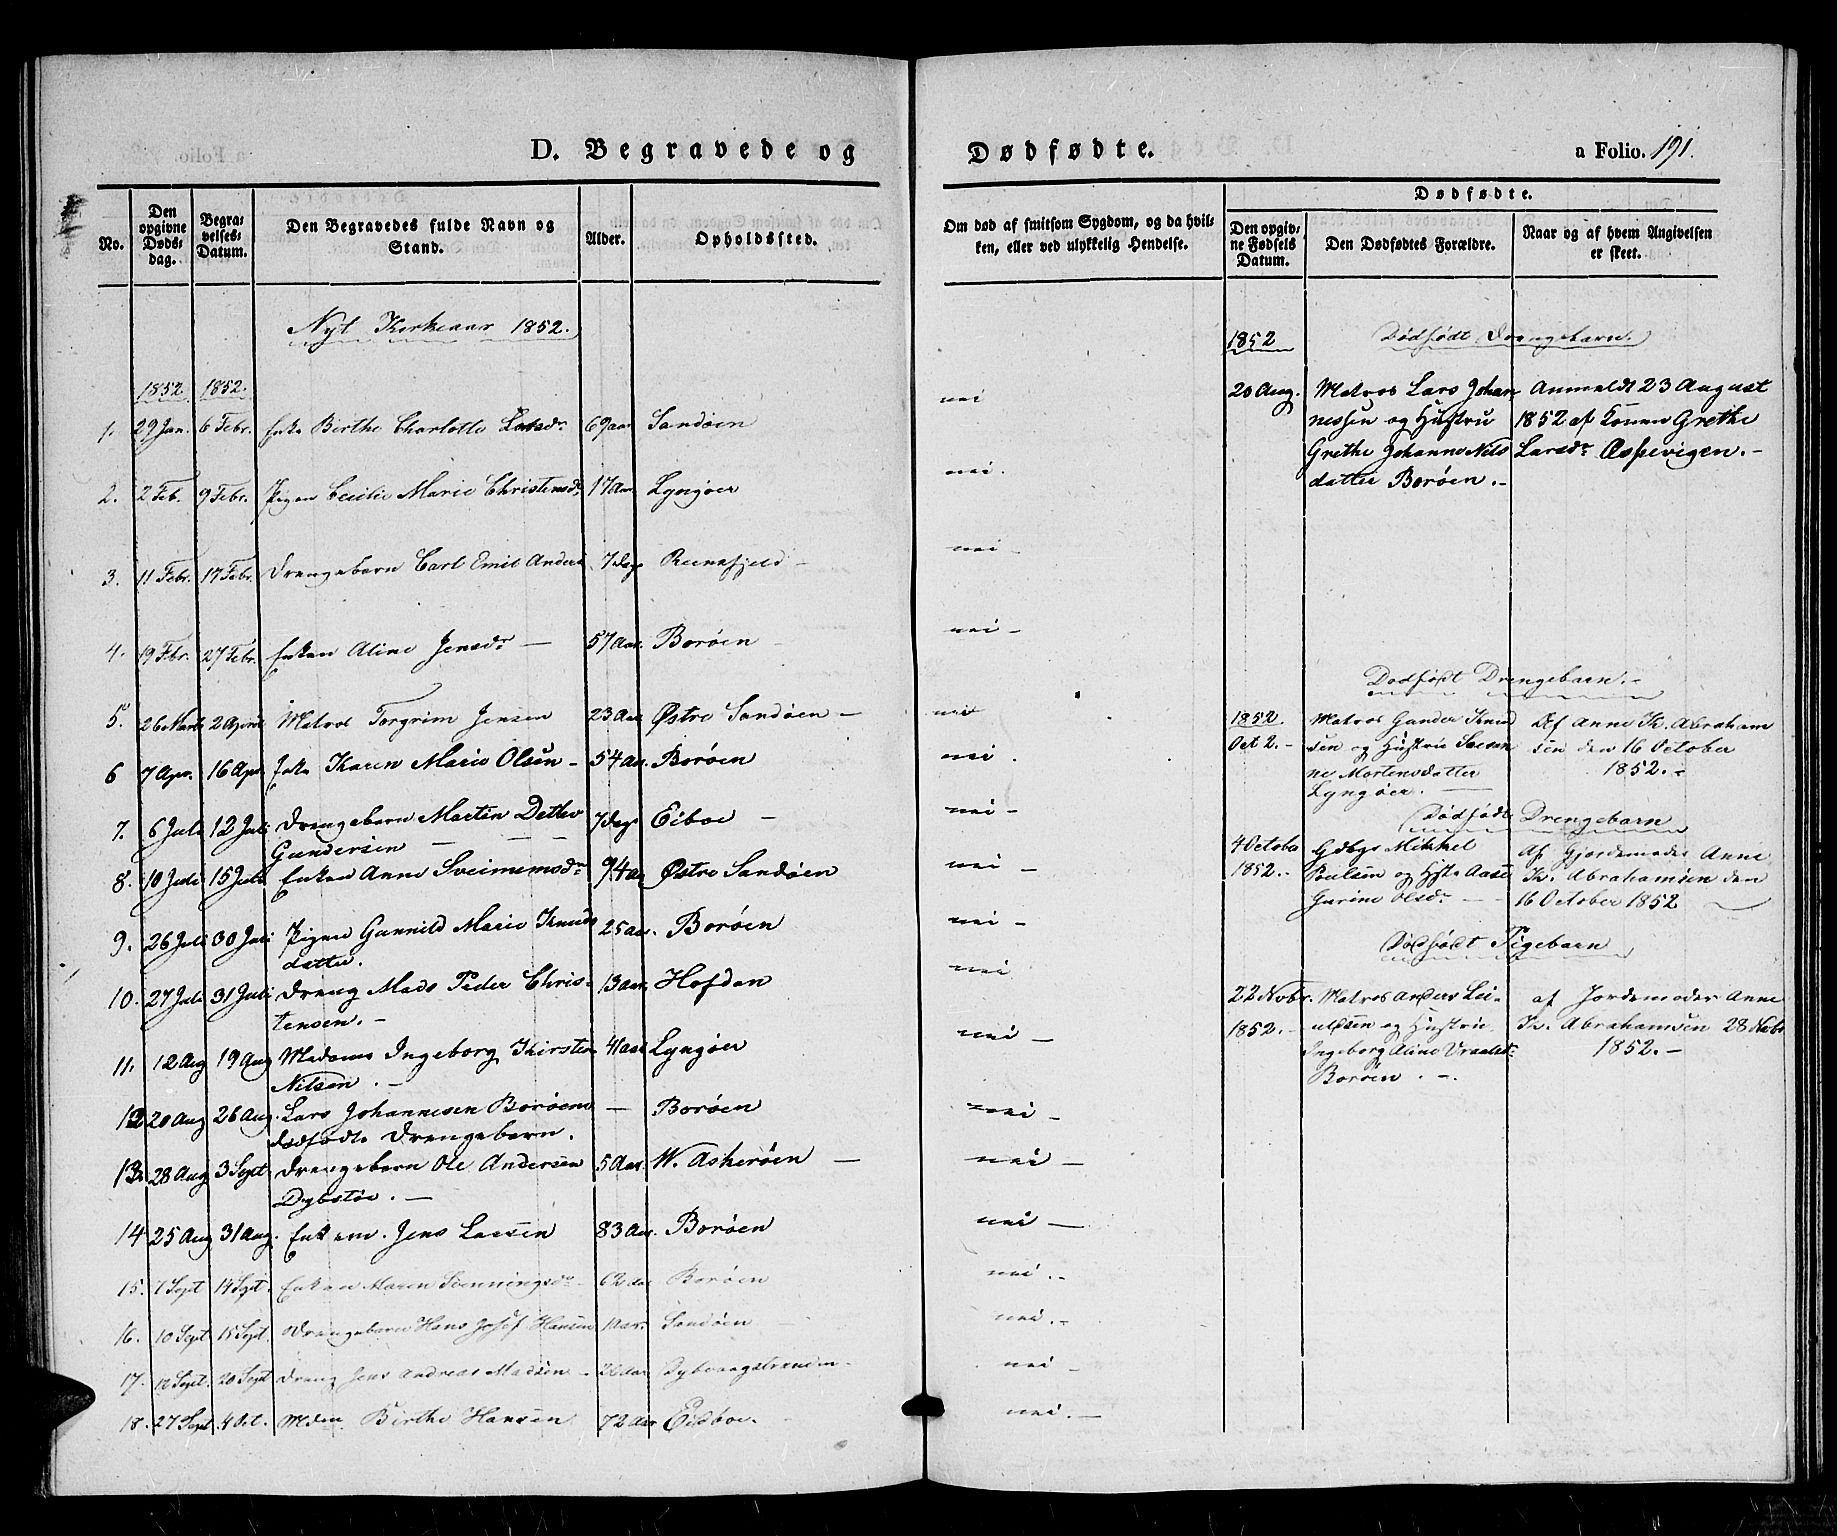 D. Begravede og
No.
Den opgivne Døds-dag.
Begravelses-Datum.
Den Begravedes fulde Navn og Stand.
Alder.
Opholdssted.
Nyt Kirkeaar 1852.
1852 1852.
1. 29 Jan. 6 Febr. Enke Birthe Charlotte Larsdr 69 aar Sandøen
2. 2 Feb. 9 Febr. Pigen Cecilie Marie Christensdr 17 Aar Lyngøer
3. 11 Febr. 17 Febr. Drengebarn Carl Emil Anders 7 Dage
4. 19 Febr. 27 Febr. Enken Aline Jensdr — 57 Aar. Borøen —
5. 26 Marts 2 April Matros Torgrim Jensen 23 Aar Østre Sandøen —
6 7 Apr. 16 Apr. Enke Karen Marie Olsen - 54 Aar. Borøen
7. 6 Juli 12 Juli Drengebarn Martin Detlev 7 Dage Eiboe —
Gundersen —
8. 10 Juli 15 Juli Enken Anne 94 aar Østre Sandøen
9. 26 Juli 30 Juli Pigen Gunnild Marie Knuds 25 Aar. Borøen
datter.
10. 27 Juli 31 Juli Dreng Mads Peder Chris- 13 aar. Hofdan
tensen. -
11. 12 Aug 19 Aug Madame Ingeborg Kirstine 41 aar Lyngøer
Nilsen . —
12 20 Aug 26 Aug. Lars Johannesen Borøens — Borøen
dødfødte Drengebarn.
13 28 Aug 3 Sept Drengebarn Ole Andersen 5 Aar. W. Askerøen —
Dybstøe. —
14 25 Aug 31 Aug. Enkem. Jens Larsen 83 Aar. Borøen
15. 7 Sept 14 Sept. Enken Maren Svenningsdr 62 aar Borøen
16. 10 Sept 15 Sept. Drengebarn Hans Josef Hansen 1 Aar. Sandøen
17. 12 Sept. 20 Sept Dreng Jens Andreas Madsen - Dybvaagstranden -
18. 27 Sept 4 Oct. Birthe Hansen 72 Aar Eidboe.
Dødfødte.
a Folio. 191.
Om død af smitsom Sygdom, og da hvil-
ken, eller ved ulykkelig Hendelse.
Dødfødte.
Den opgiv-ne Fødsels Datum.
Den Dødfødtes Forældre.
Naar og af hvem Angivelsen er skeet.
nei
nei.
nei -
nei -
nei
nei .
nei -
nei -
nei -
nei
nei -
nei -
nei -
nei —
nei. -
nei. -
nei -
nei. —
1852 Dødfødt Drengebarn.
20 Aug. Matros Lars Johan Anmeldt 23 August
nessen og Hustru 1852 af Konen Grethe
Grethe Johanne Nils Larsdr Æspevigen. -
datter Borøen. -
Dødfødt Drengebarn. -
1852. Matros Gunder Knud Af Anne K. Abraham
Oct 2. - sen og Hustrue sen den 16 October
ne Mortensdatter 1852. -
Lyngøer. —
Dødfødt Drengebarn
4 October Mikkel af Gjordemoder Anne
1852. - Poulsen og Hst. Aase K. Abrahamsen den
Gurine Olsdr - - 16 October 1852
Dødfødt Pigebarn
22 Nobr. Matros Anders Lei- af Jordemoder Anne
1852. - ulfsen og Hustrue K. Abrahamsen 28 Nobr
Ingeborg Aline 1852. -
Borøen . -.